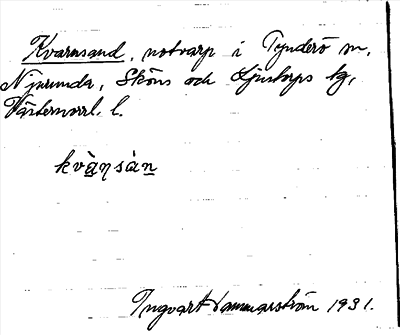 Kvarnsand, notvarp i Tynderö sn,
Njurunda, Sköns och Ljustorps tg,
Västernorrl. l.
kvàṉsàṉ
Ingvart Hammarström 1931.